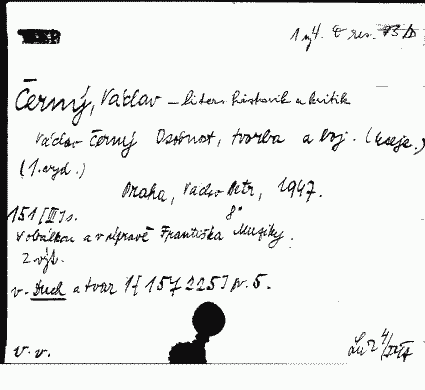 Černý, Václav – liter. historik a kritik
Václav Černý Osobnost, tvorba a boj. (eseje.)
(1. vyd.)
Praha, Václav Petr, 1947.
151 [III] s. 8°
V obálkou a v úpravě Františka Muziky.
2 výt.
v. Duch a tvar 1 [157225] sv. 5.
v. v.